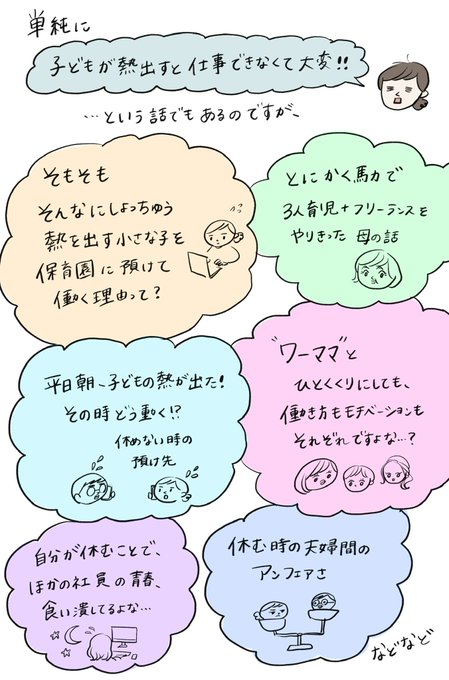 単純に
子どもが熱出すと仕事できなくて大変!!
…という話でもあるのですが、
そもそも
そんなにしょっちゅう
熱を出す小さな子を
保育園に預けて
働く理由って?
とにかく馬力で
3人育児+フリーランスを
やりきった母の話
平日朝、子どもの熱が出た!
その時どう動く!?
休めない時の
預け先
"ワーママ"と
ひとくくりにしても、
働き方もモチベーションも
それぞれですよな…?
自分が休むことで、
ほかの社員の青春、
食い潰してるよな…
休む時の夫婦間の
アンフェアさ
などなど